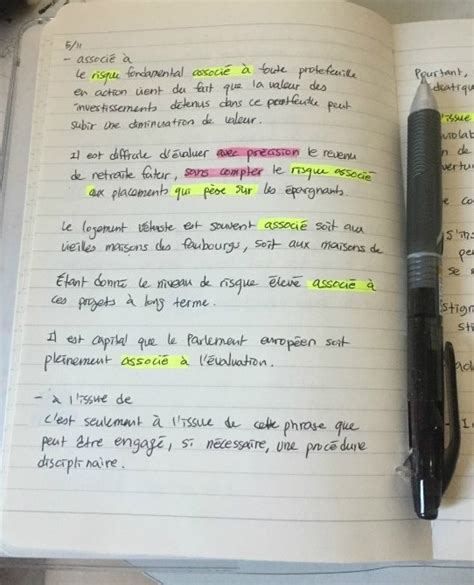 5/11
- associé à
Le risque fondamental associé à toute protefeuille
en action vient du fait que la valeur des
investissements détenus dans ce portfeuille peut
subir une diminuation de valeur.
Il est difficile d'évaluer avec précision le revenu
de retraite futur, sans compter le risque associé
aux placements qui pèse sur les épargnants.
Le logement vétuste est souvent associé soit aux
vieilles maisons des faubourgs, soit aux maisons de
Étant donné le niveau de risque élevé associé à
ces projets à long terme.
Il est capital que le Parlement européen soit
pleinement associé à l'évaluation.
- à l'issue de
c'est seulement à l'issue de cette phrase que
peut être engagé, si nécessaire, une procédure
disciplinaire.
Pourtant,
l'issue